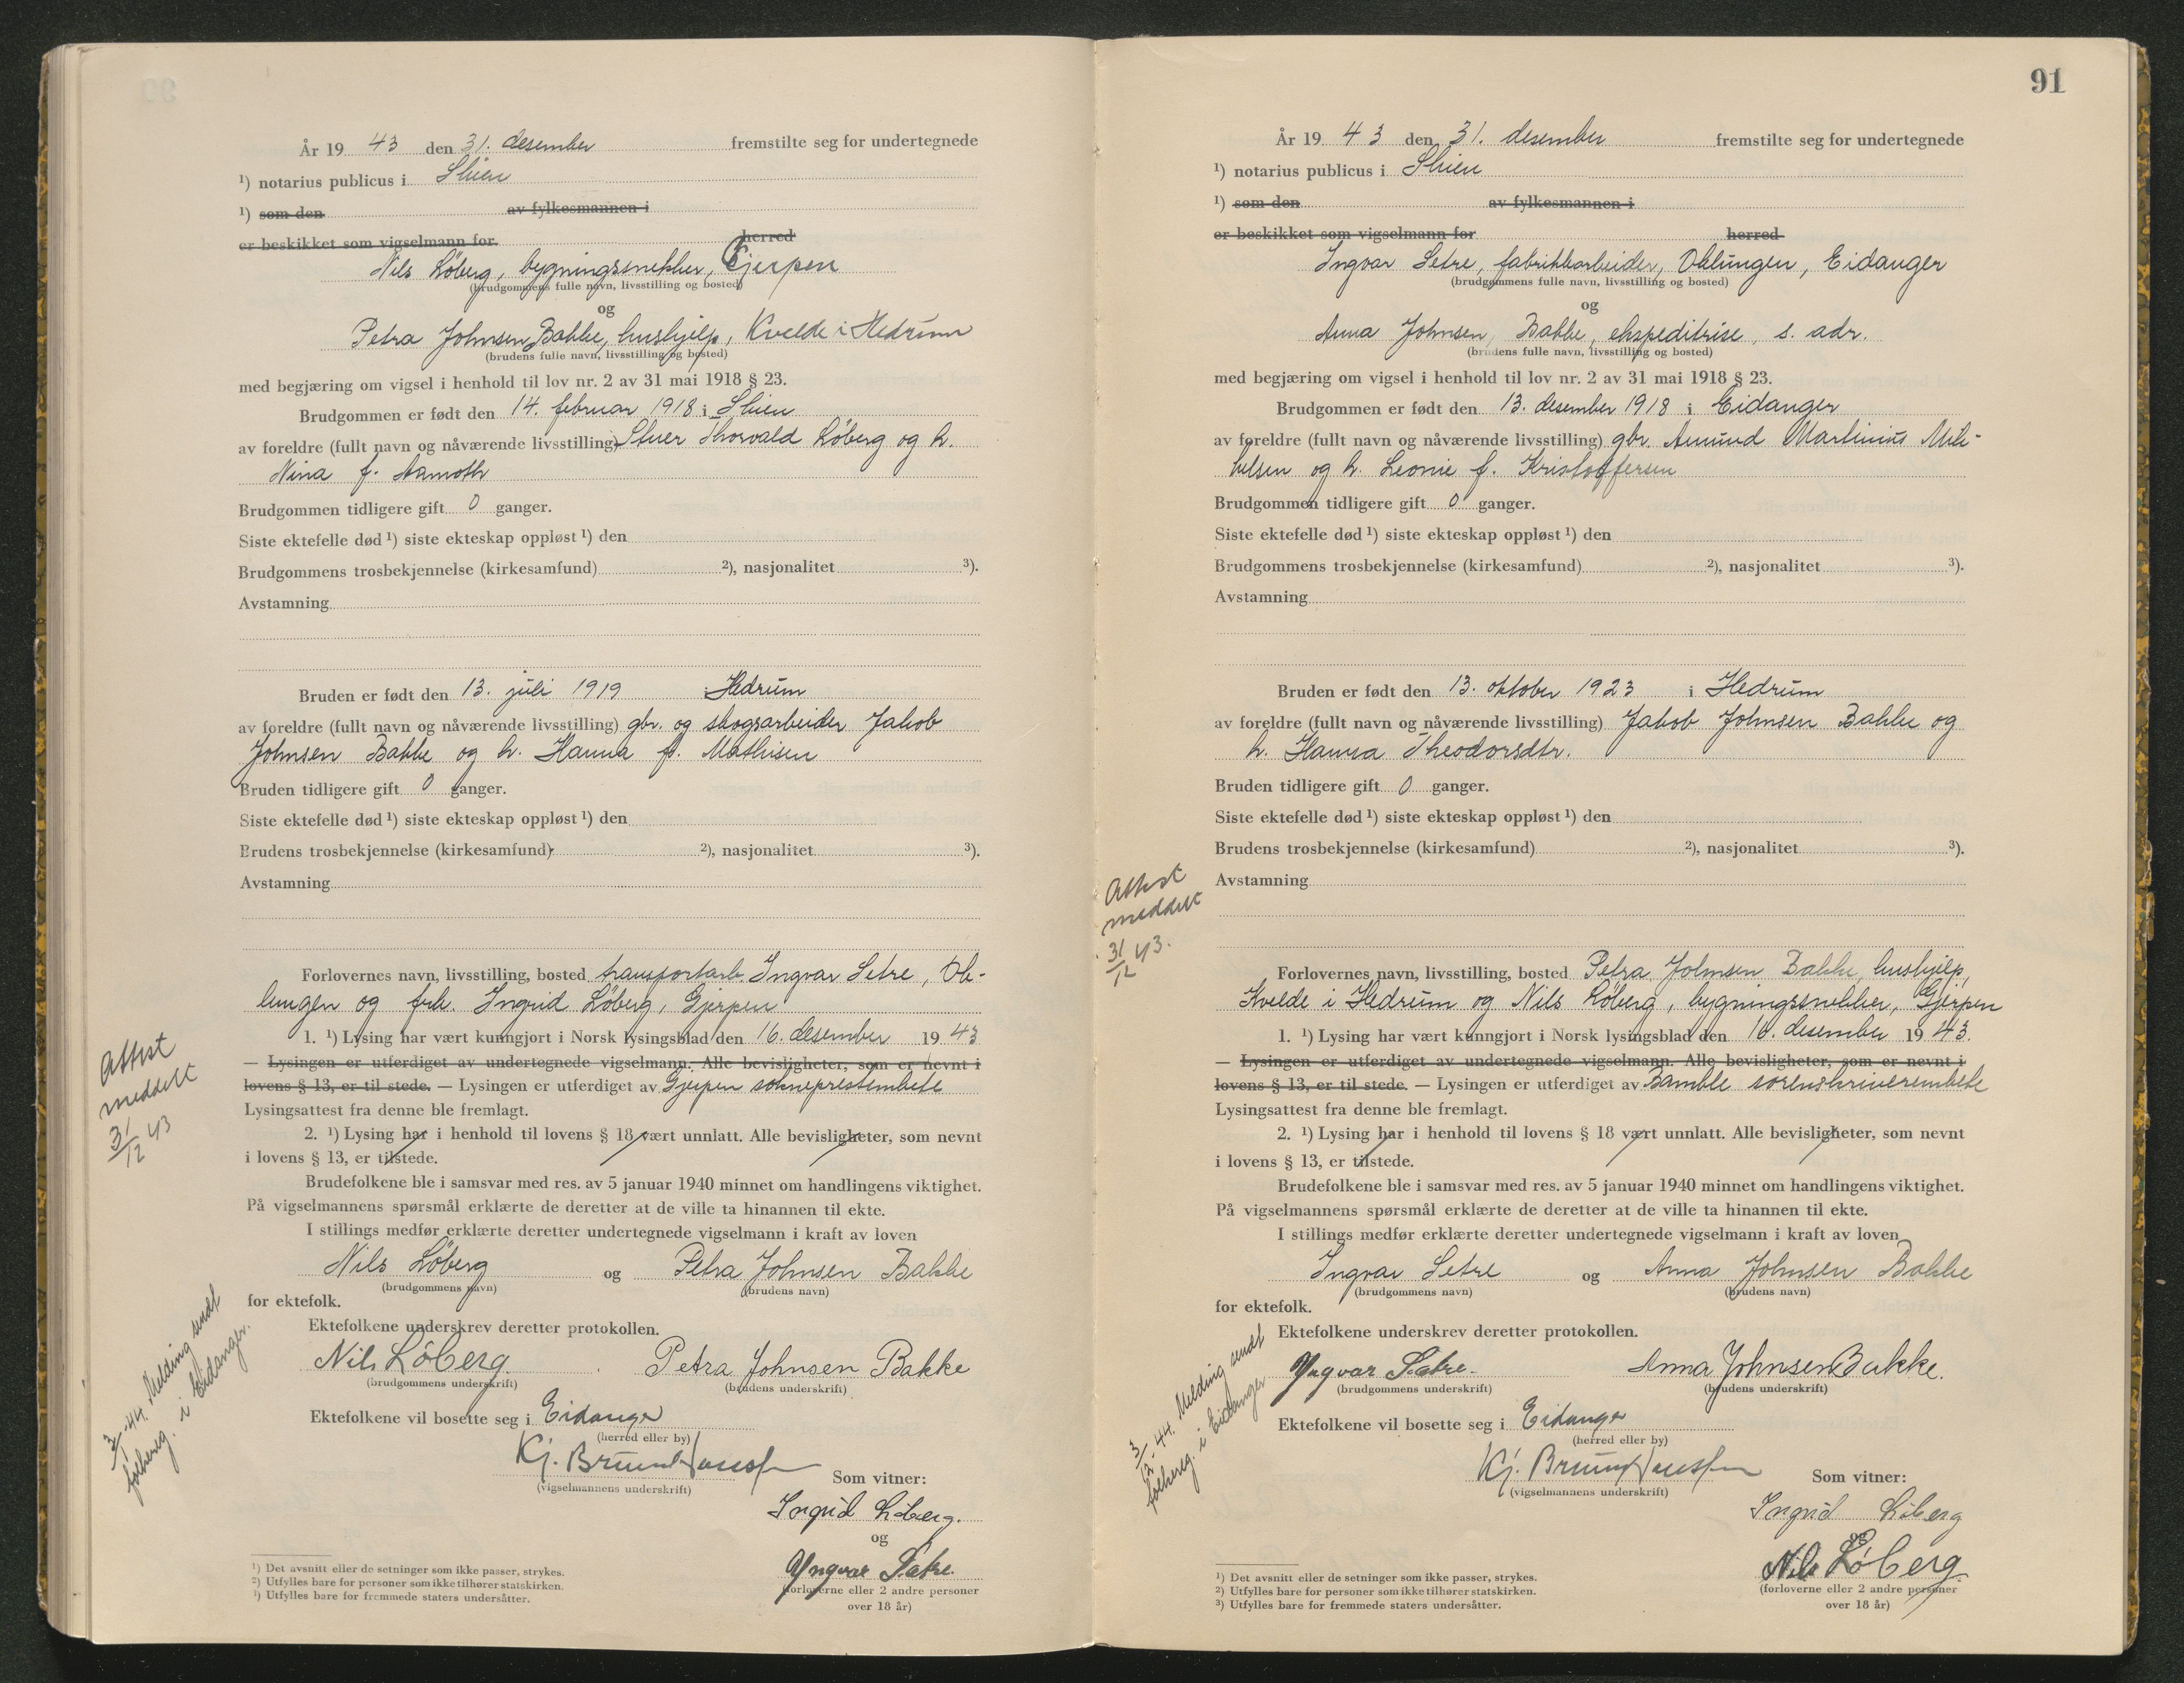 År 19 43 den 31. desember fremstilte seg for undertegnede
¹) notarius publicus i Skien
¹) som den av fylkesmannen i
er beskikket som vigselmann for herred
Nils Löberg, bygningssnekker, Gjerpen
(brudgommens fulle navn, livsstilling og bosted)
og
Petra Johnsen Bakke, hushjelp, Kvelde i Hedrum
(brudens fulle navn, livsstilling og bosted)
med begjæring om vigsel i henhold til lov nr. 2 av 31 mai 1918 § 23.
Brudgommen er født den 14. februar 1918 i Skien
av foreldre (fullt navn og nåværende livsstilling) Stuer Thorvald Löberg og h.
Nina f. Aamoth
Brudgommen tidligere gift 0 ganger.
Siste ektefelle død ¹) siste ekteskap oppløst ¹) den
Brudgommens trosbekjennelse (kirkesamfund) ²), nasjonalitet ³).
Avstamning
Bruden er født den 13. juli 1919 i Hedrum
av foreldre (fullt navn og nåværende livsstilling) gbr. og skogsarbeider Jakob
Johnsen Bakke og h. Hanna f. Mathisen
Bruden tidligere gift 0 ganger.
Siste ektefelle død ¹) siste ekteskap oppløst ¹) den
Brudens trosbekjennelse (kirkesamfund) ²), nasjonalitet ³).
Avstamning
Forlovernes navn, livsstilling, bosted transportarb. Ingvar Setre, Ok-
lungen og frk. Ingrid Löberg, Gjerpen
1. ¹) Lysing har vært kunngjort i Norsk lysingsblad den 16. desember 19 43
— Lysingen er utferdiget av undertegnede vigselmann. Alle bevisligheter, som er nevnt i
lovens § 13, er til stede. — Lysingen er utferdiget av Gjerpen sokneprestembete
Lysingsattest fra denne ble fremlagt.
2. ¹) Lysing har i henhold til lovens § 18 vært unnlatt. Alle bevisligheter, som nevnt
i lovens § 13, er tilstede.
Brudefolkene ble i samsvar med res. av 5 januar 1940 minnet om handlingens viktighet.
På vigselmannens spørsmål erklærte de deretter at de ville ta hinannen til ekte.
I stillings medfør erklærte deretter undertegnede vigselmann i kraft av loven
Nils Löberg og Petra Johnsen Bakke
(brudgommens navn) (brudens navn)
for ektefolk.
Ektefolkene underskrev deretter protokollen.
Nils Löberg. Petra Johnsen Bakke
(brudgommens underskrift) (brudens underskrift)
Ektefolkene vil bosette seg i Eidanger
(herred eller by)
Kj. Bruun Hanssen
(vigselmannens underskrift)
Som vitner:
Ingrid Löberg.
og
Yngvar Sætre.
(forloverne eller 2 andre personer
over 18 år)
¹) Det avsnitt eller de setninger som ikke passer, strykes.
²) Utfylles bare for personer som ikke tilhører statskirken.
³) Utfylles bare for fremmede staters undersåtter.
Attest
meddelt
31/12 43
3/1-44. Melding sendt
folkereg. i Eidanger.
91
År 19 43 den 31. desember fremstilte seg for undertegnede
¹) notarius publicus i Skien
¹) som den av fylkesmannen i
er beskikket som vigselmann for herred
Ingvar Setre, fabrikkarbeider, Oklungen, Eidanger
(brudgommens fulle navn, livsstilling og bosted)
og
Anna Johnsen Bakke, ekspeditrise, s. adr.
(brudens fulle navn, livsstilling og bosted)
med begjæring om vigsel i henhold til lov nr. 2 av 31 mai 1918 § 23.
Brudgommen er født den 13. desember 1918 i Eidanger
av foreldre (fullt navn og nåværende livsstilling) gbr. Amund Martinius Mik-
kelsen og h. Leonie f. Kristoffersen
Brudgommen tidligere gift 0 ganger.
Siste ektefelle død ¹) siste ekteskap oppløst ¹) den
Brudgommens trosbekjennelse (kirkesamfund) ²), nasjonalitet ³).
Avstamning
Bruden er født den 13. oktober 1923 i Hedrum
av foreldre (fullt navn og nåværende livsstilling) Jakob Johnsen Bakke og
h. Hanna Theodorsdtr.
Bruden tidligere gift 0 ganger.
Siste ektefelle død ¹) siste ekteskap oppløst ¹) den
Brudens trosbekjennelse (kirkesamfund) ²), nasjonalitet ³).
Avstamning
Forlovernes navn, livsstilling, bosted Petra Johnsen Bakke, hushjelp,
Kvelde i Hedrum og Nils Löberg, bygningssnekker, Gjerpen
1. ¹) Lysing har vært kunngjort i Norsk lysingsblad den 16. desember 19 43.
— Lysingen er utferdiget av undertegnede vigselmann. Alle bevisligheter, som er nevnt i
lovens § 13, er til stede. — Lysingen er utferdiget av Bamble sorenskriverembete
Lysingsattest fra denne ble fremlagt.
2. ¹) Lysing har i henhold til lovens § 18 vært unnlatt. Alle bevisligheter, som nevnt
i lovens § 13, er tilstede.
Brudefolkene ble i samsvar med res. av 5 januar 1940 minnet om handlingens viktighet.
På vigselmannens spørsmål erklærte de deretter at de ville ta hinannen til ekte.
I stillings medfør erklærte deretter undertegnede vigselmann i kraft av loven
Ingvar Setre og Anna Johnsen Bakke
(brudgommens navn) (brudens navn)
for ektefolk.
Ektefolkene underskrev deretter protokollen.
Yngvar Sætre. Anna Johnsen Bakke.
(brudgommens underskrift) (brudens underskrift)
Ektefolkene vil bosette seg i Eidanger
(herred eller by)
Kj. Bruun Hanssen
(vigselmannens underskrift)
Som vitner:
Ingrid Löberg
og
Nils Löberg.
(forloverne eller 2 andre personer
over 18 år)
¹) Det avsnitt eller de setninger som ikke passer, strykes.
²) Utfylles bare for personer som ikke tilhører statskirken.
³) Utfylles bare for fremmede staters undersåtter.
Attest
meddelt
31/12 43.
Melding sendt
folkereg. i Eidanger